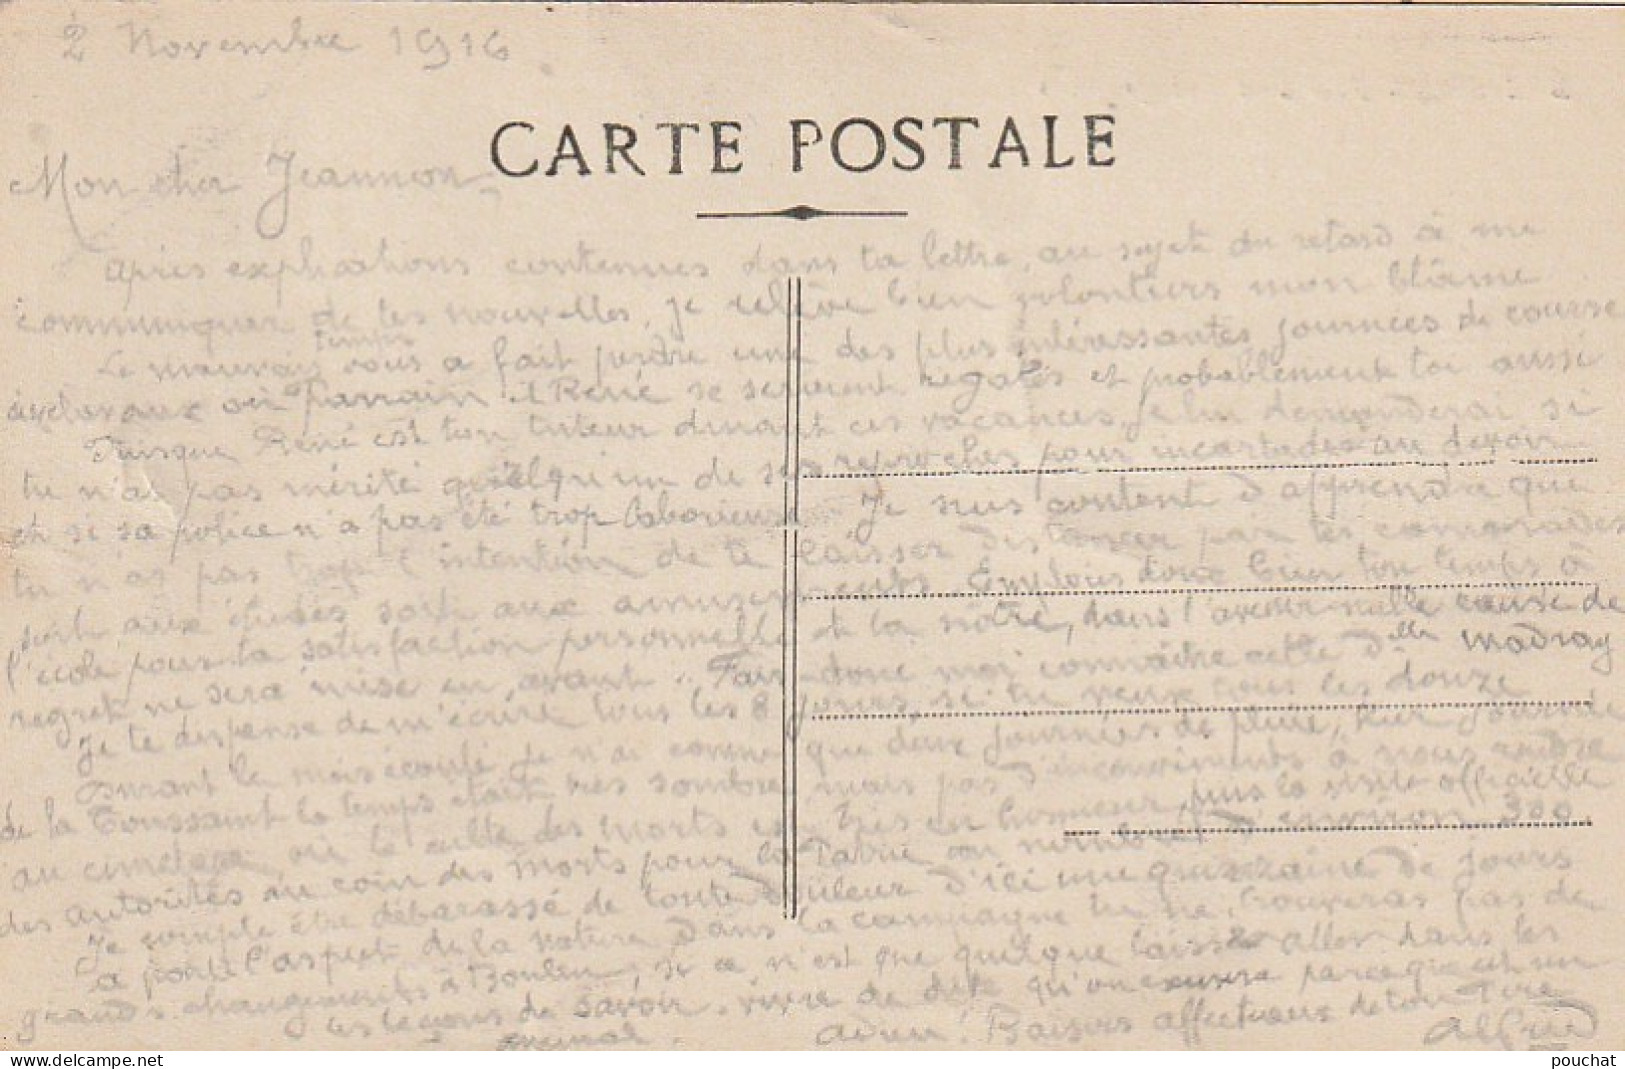 2 Novembre 1916
CARTE POSTALE
Mon cher Jeannon
Après explications contenues dans ta lettre, au sujet du retard à me
communiquer de tes nouvelles, je relève bien volontiers mon blâme
Le mauvais temps vous a fait perdre une des plus intéressantes journées de course
où Parrain & René se seraient régalés et probablement toi aussi
Puisque René est ton tuteur durant ces vacances, je lui demanderai si
tu n'as pas mérité quelqu'un de ses reproches pour incartades au devoir
et si sa police n'a pas été trop laborieuse. Je suis content d'apprendre que
tu n'as pas trop l'intention de te laisser distancer par tes camarades
soit aux études soit aux amusements. Emploies donc bien ton temps à
l'école pour ta satisfaction personnelle et la nôtre, dans l'avenir nulle cause de
regret ne sera mise en avant. Fais-donc moi connaître cette d'elle madray
Je te dispense de m'écrire tous les 8 jours, si tu veux tous les douze
Durant le mois écoulé je n'ai comme que deux journées de pluie, hier journée
de la Toussaint le temps était très sombre, mais pas d'inconvénients à nous rendre
au cimetière, où le culte des morts est très en honneur, puis la visite officielle
des autorités au coin des morts pour la Patrie au nombre d'environ 300.
Je compte être débarassé de toute douleur d'ici une quinzaine de jours
a porté l'aspect de la nature dans la campagne tu ne trouveras pas de
grands changements à Boulou, si ce n'est que quelque laisser aller dans les
les leçons de savoir-vivre de dite qu'on excusera parce que est un
adieu! Baisers affectueux de ton Père
Alfred
pouchat